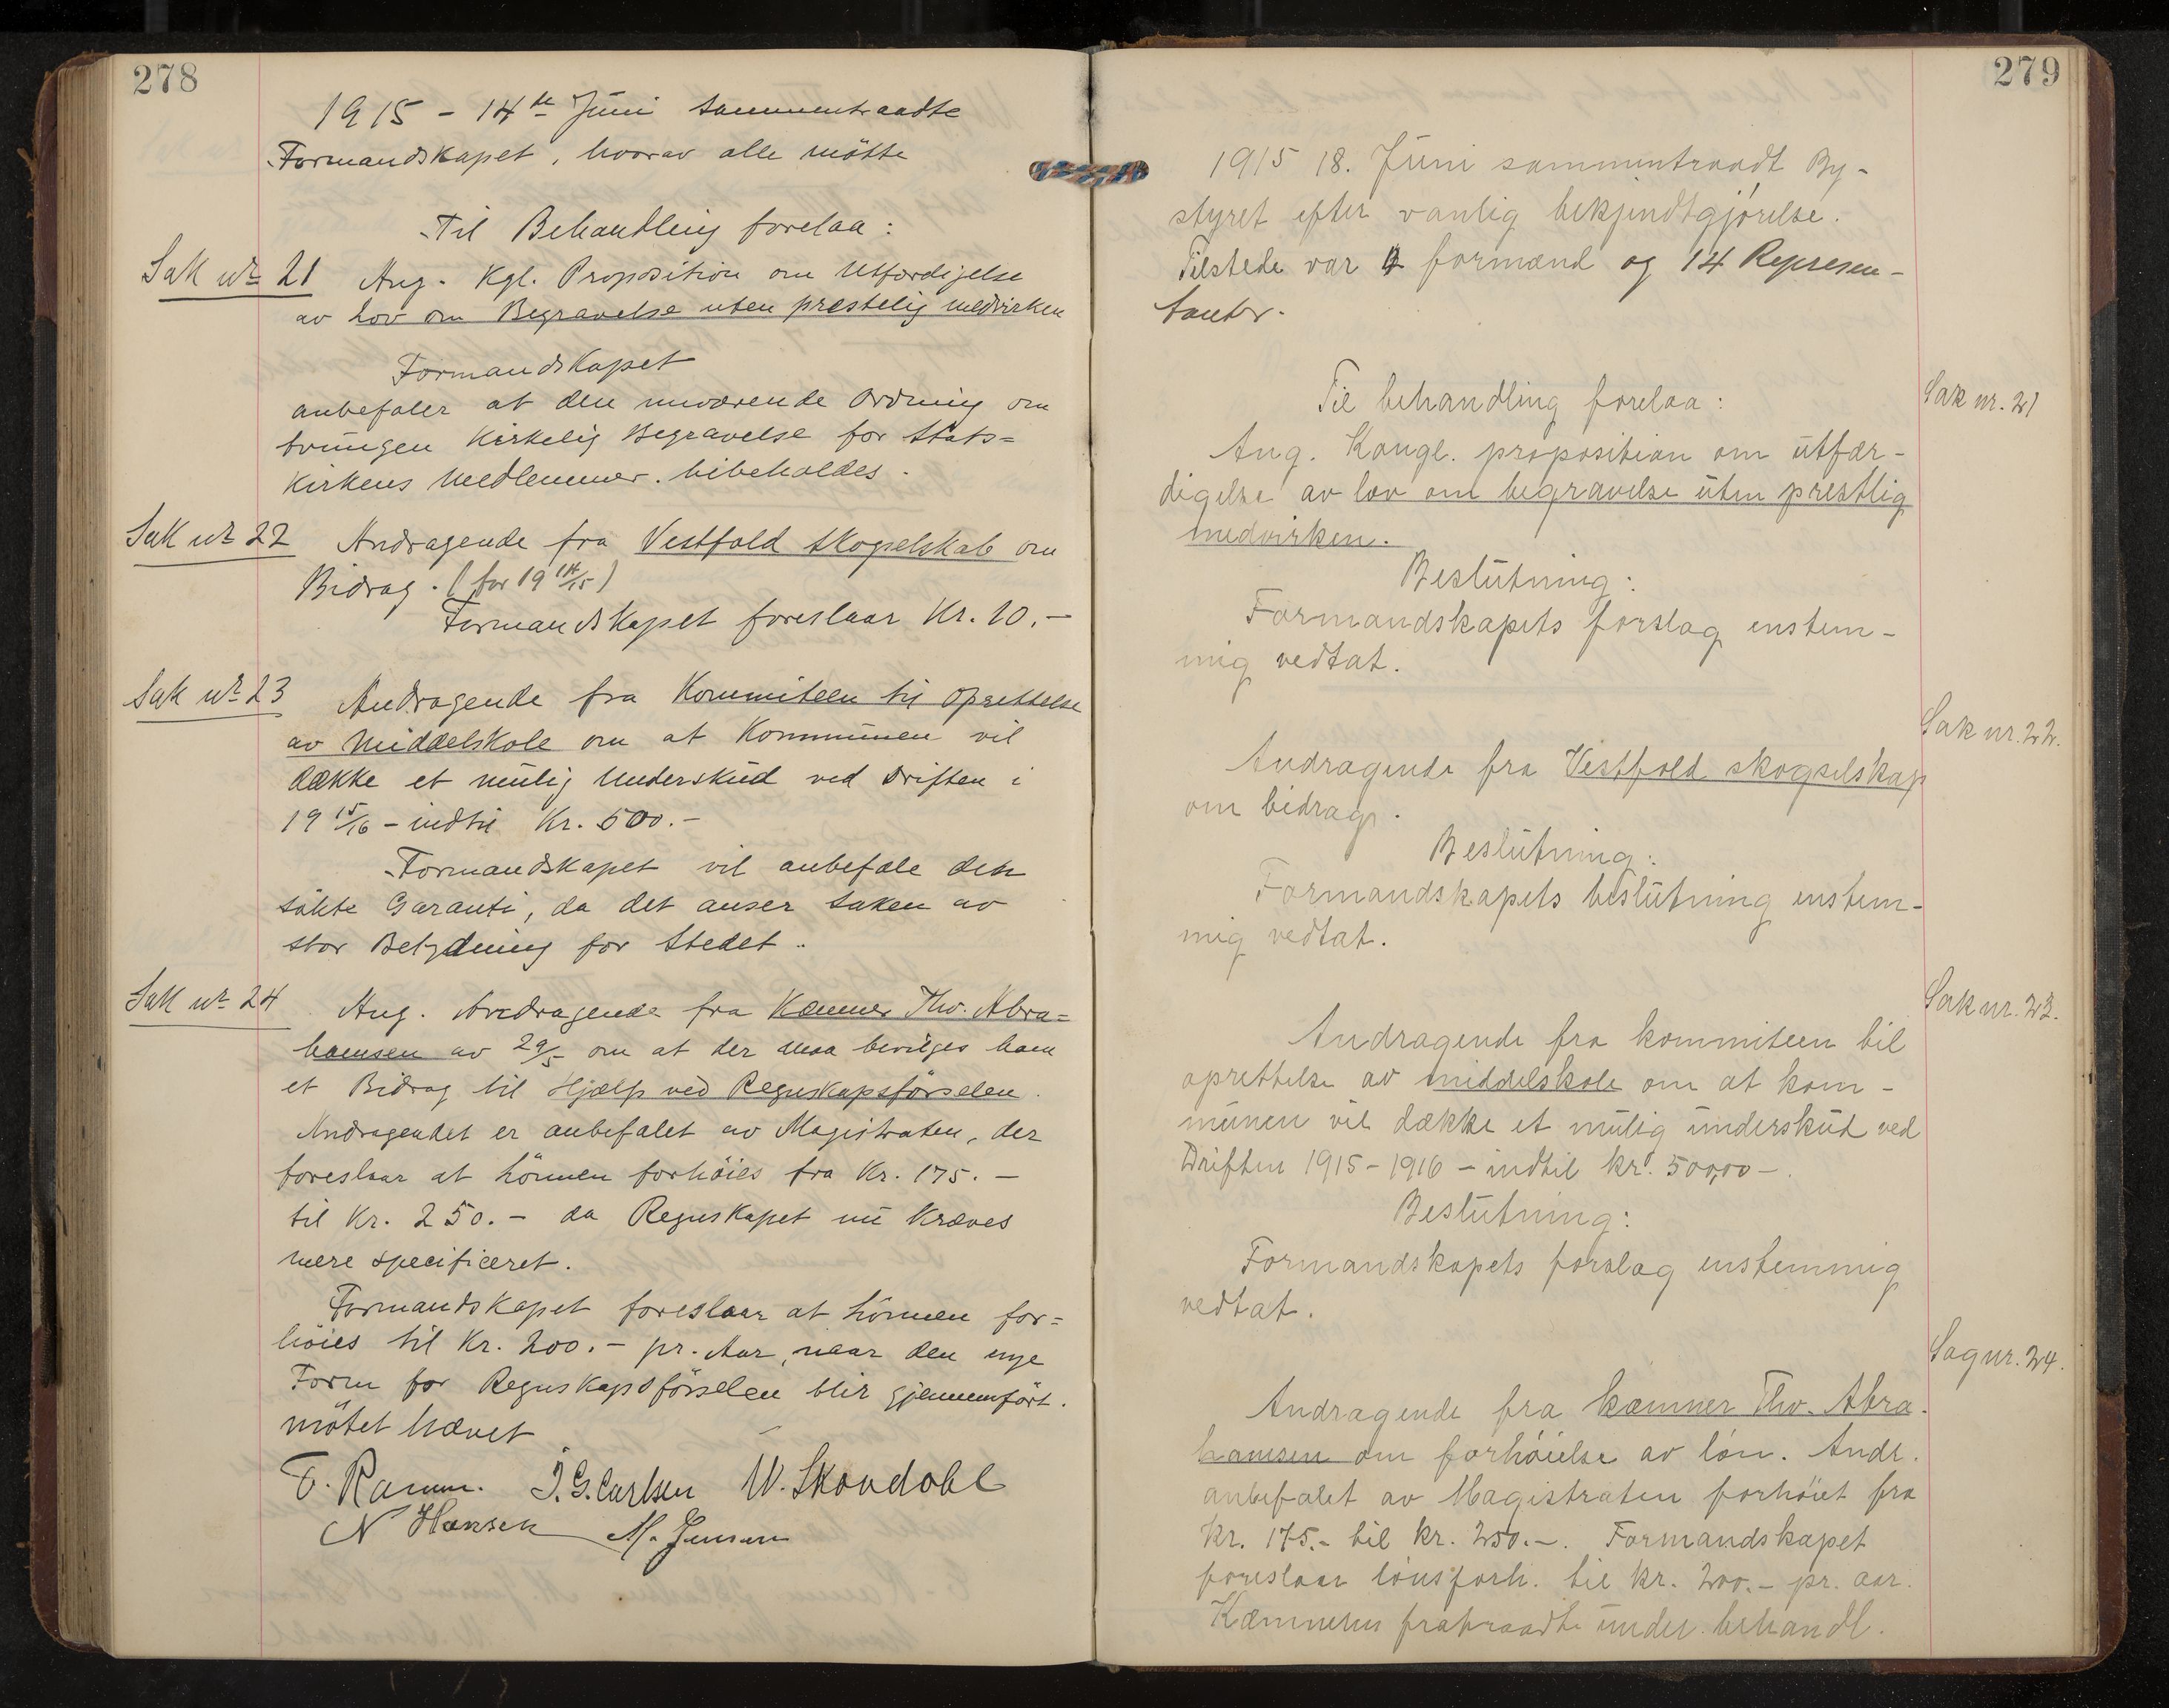 278
1915 - 14de Juni sammentraadte
Formandskapet, hvorav alle mötte
Til Behandling forelaa:
Sak nr 21 Ang. Kgl. Proposition om Utfærdigelse
av Lov om Begravelse uten prestelig medvirken
Formandskapet
anbefaler at den nuværende Ordning om
tvungen Kirkelig Begravelse for Stats=
kirkens Medlemmer. bibeholdes.
Sak nr 22 Andragende fra Vestfold Skogselskab om
Bidrag. (for 1914/15)
Formandskapet foreslaar Kr. 10.-
Sak nr 23 Andragende fra Kommiteen til Oprettelse
av Middelskole om at Kommunen vil
dække et mulig Underskud ved Driften i
1915/16 - indtil Kr. 500.-
Formandskapet vil anbefale den
sökte Garanti, da det anser Saken av
stor Betydning for Stedet.
Sak nr 24 Ang. Andragende fra Kæmner Thv. Abra=
hamsen av 29/5 om at der maa bevilges ham
et Bidrag til Hjælp ved Regnskapsförselen.
Andragendet er anbefalet av Magistraten, der
foreslaar at Lönnen forhöies fra Kr. 175.-
til Kr. 250.- da Regnskapet nu kræves
mere specificeret.
Formandskapet foreslaar at Lönnen for=
höies til Kr. 200.- pr. Aar, naar den nye
Form for Regnskapsförselen blir gjennemfört.
Mötet hævet
F. Ramm. J. G. Carlsen W. Skovdahl
N Hansen M. Jensen
279
1915 18. Juni sammentraadt By-
styret efter vanlig bekjendtgjörelse.
Tilstede var formænd og 14 Represen-
tanter.
Til behandling forelaa:
Sak nr. 21
Ang. Kongl. proposition om utfær-
digelse av lov om begravelse uten prestlig
medvirken.
Beslutning:
Formandskapets forslag enstem-
mig vedtat.
Sak nr. 22.
Andragende fra Vestfold skogselskap
om bidrag.
Beslutning:
Formandskapets beslutning enstem-
mig vedtat.
Sak nr. 23.
Andragende fra kommiteen til
oprettelse av middelskole om at kom-
munen vil dække et mulig underskud ved
Driften 1915-1916 - indtil kr. 500,00-.
Beslutning:
Formandskapets forslag enstemmig
vedtat.
Sag nr. 24.
Andragende fra kæmner Thv. Abra-
hamsen om forhöielse av lön. Andr.
anbefalet av Magistraten forhöiet fra
Kr. 175.- til kr. 250.-. Formandskapet
foreslaar lönsforh. til kr. 200.- pr. aar.
Kæmneren fratraadte under behandl.